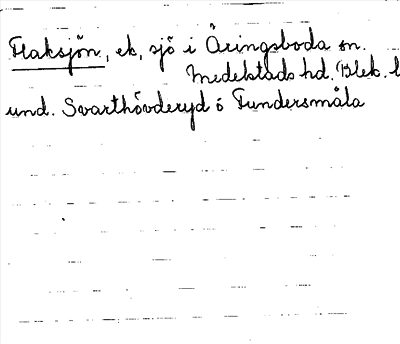 Flaksjön, ek, sjö i Åringsboda sn.
Medelstads hd. Blek. l
und. Svarthövderyd ó Tundersmåla